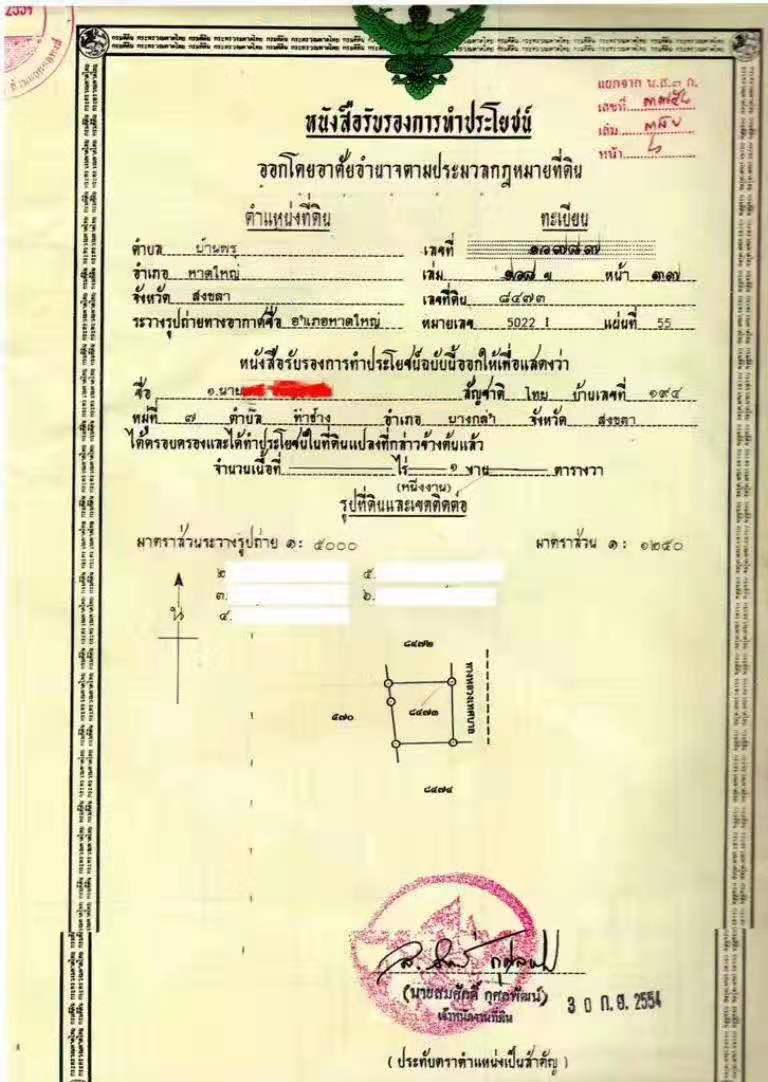 2554
แยกจาก น.ส.๓ ก.
เลขที่
เล่ม
หน้า
หนังสือรับรองการทำประโยชน์
ออกโดยอาศัยอำนาจตามประมวลกฎหมายที่ดิน
ตำแหน่งที่ดิน ทะเบียน
ตำบล บ้านพรุ เลขที่
อำเภอ หาดใหญ่ เล่ม หน้า ๓๗
จังหวัด สงขลา เลขที่ดิน ๘๔๗๓
ระวางรูปถ่ายทางอากาศชื่อ อำเภอหาดใหญ่ หมายเลข 5022 I แผ่นที่ 55
หนังสือรับรองการทำประโยชน์ฉบับนี้ออกให้เพื่อแสดงว่า
ชื่อ ๑.นาย สัญชาติ ไทย บ้านเลขที่ ๑๙๔
หมู่ที่ ๗ ตำบล ท่าช้าง อำเภอ บางกล่ำ จังหวัด สงขลา
ได้ครอบครองและได้ทำประโยชน์ในที่ดินแปลงที่กล่าวข้างต้นแล้ว
จำนวนเนื้อที่ ไร่ ๑ งาน ตารางวา
(หนึ่งงาน)
รูปที่ดินและเขตติดต่อ
มาตราส่วนระวางรูปถ่าย ๑: ๕๐๐๐ มาตราส่วน ๑: ๑๒๕๐
๒ ๕.
๓. ๖.
๔.
น
๘๔๗๒
ทางหลวงเทศบาล
๘๔๗๓
๕๗๐
๘๔๗๔
(นายสมศักดิ์ กุศลพัฒน์)
เจ้าพนักงานที่ดิน
3 0 ก.ย. 2554
( ประทับตราตำแหน่งเป็นสำคัญ )